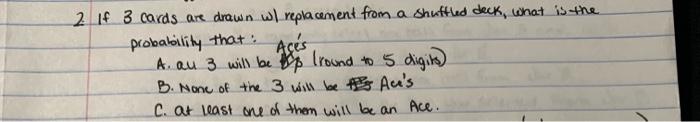 2 If 3 cards are drawn w/ replacement from a shuffled deck, what is the
probability that:
A. all 3 will be Ace's (round to 5 digits)
B. None of the 3 will be Ace's
C. at least one of them will be an Ace.